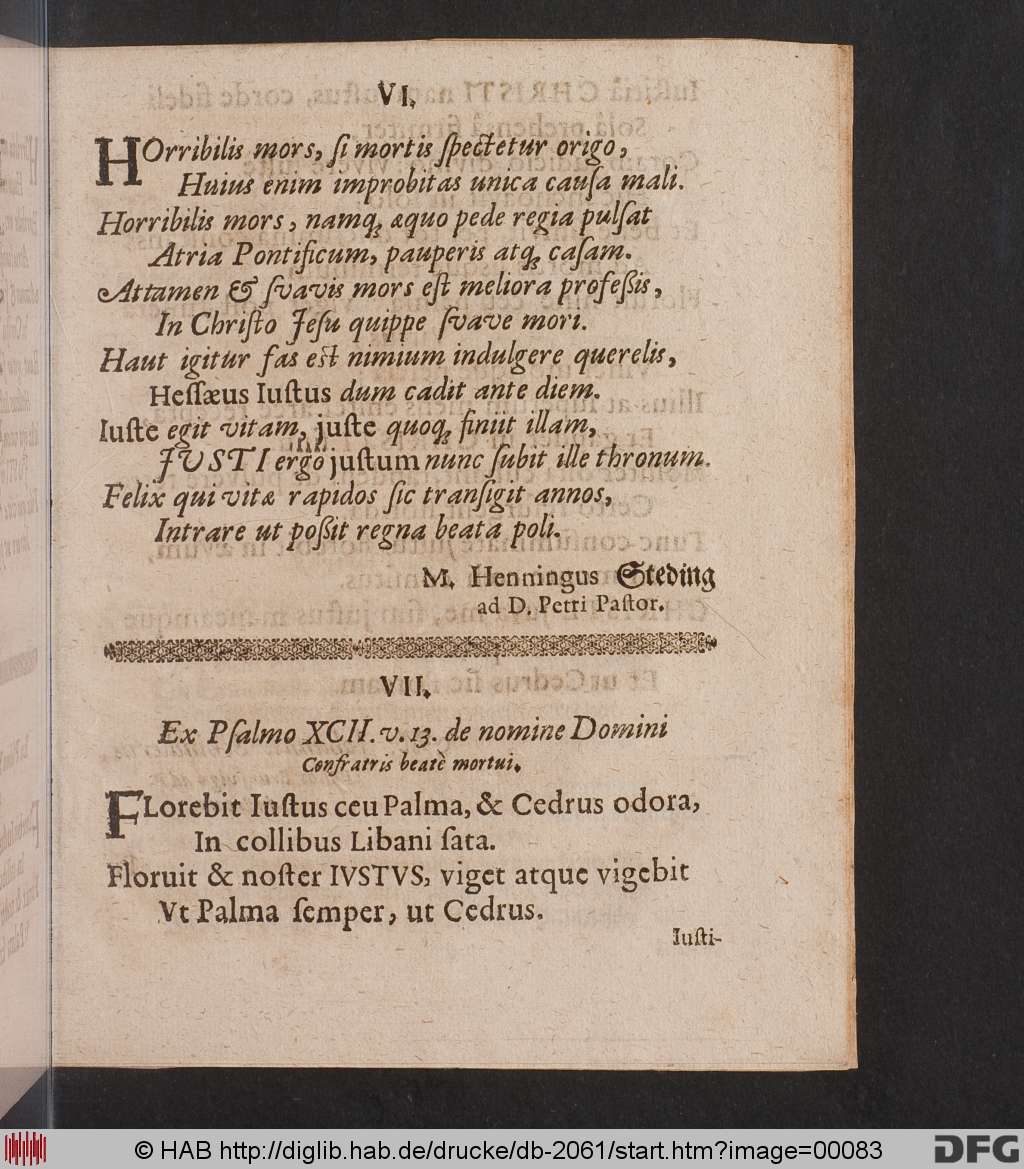 VI.
HOrribilis mors, ſi mortis ſpectetur origo,
Huius enim improbitas unica cauſa mali.
Horribilis mors, namq; æquo pede regia pulſat
Atria Pontificum, pauperis atq; caſam.
Attamen & ſvavis mors eſt meliora profeßis,
In Chriſto Jeſu quippe ſvave mori.
Haut igitur fas est nimium indulgere querelis,
Heſſæus Iuſtus dum cadit ante diem.
Iuſte egit vitam, juſte quoq; finiit illam,
JUSTI ergò juſtum nunc ſubit ille thronum.
Felix qui vitæ rapidos ſic tranſigit annos,
Intrare ut poßit regna beata poli.
M. Henningus Steding
ad D. Petri Paſtor.
VII.
Ex Pſalmo XCII. v. 13. de nomine Domini
Confratris beatè mortui.
FLorebit Iuſtus ceu Palma, & Cedrus odora,
In collibus Libani ſata.
Floruit & noſter IVSTVS, viget atque vigebit
Vt Palma ſemper, ut Cedrus.
Iuſti-
© HAB http://diglib.hab.de/drucke/db-2061/start.htm?image=00083
DFG